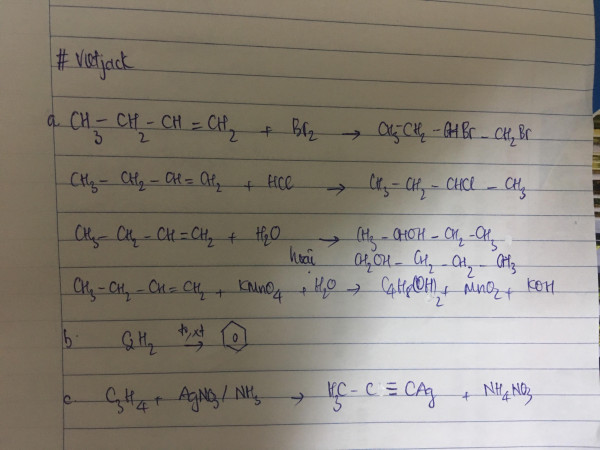 # Vietjack
a. CH3 – CH2 – CH = CH2 + Br2 → CH3 – CH2 – CHBr – CH2Br
CH3 – CH2 – CH = CH2 + HCl → CH3 – CH2 – CHCl – CH3
CH3 – CH2 – CH = CH2 + H2O → CH3 – CHOH – CH2 – CH3
hoặc CH2OH – CH2 – CH2 – CH3
CH3 – CH2 – CH = CH2 + KMnO4 + H2O → C4H8(OH)2 + MnO2 + KOH
b. C2H2 →
c. C3H4 + AgNO3 / NH3 → H3C – C ≡ CAg + NH4NO3